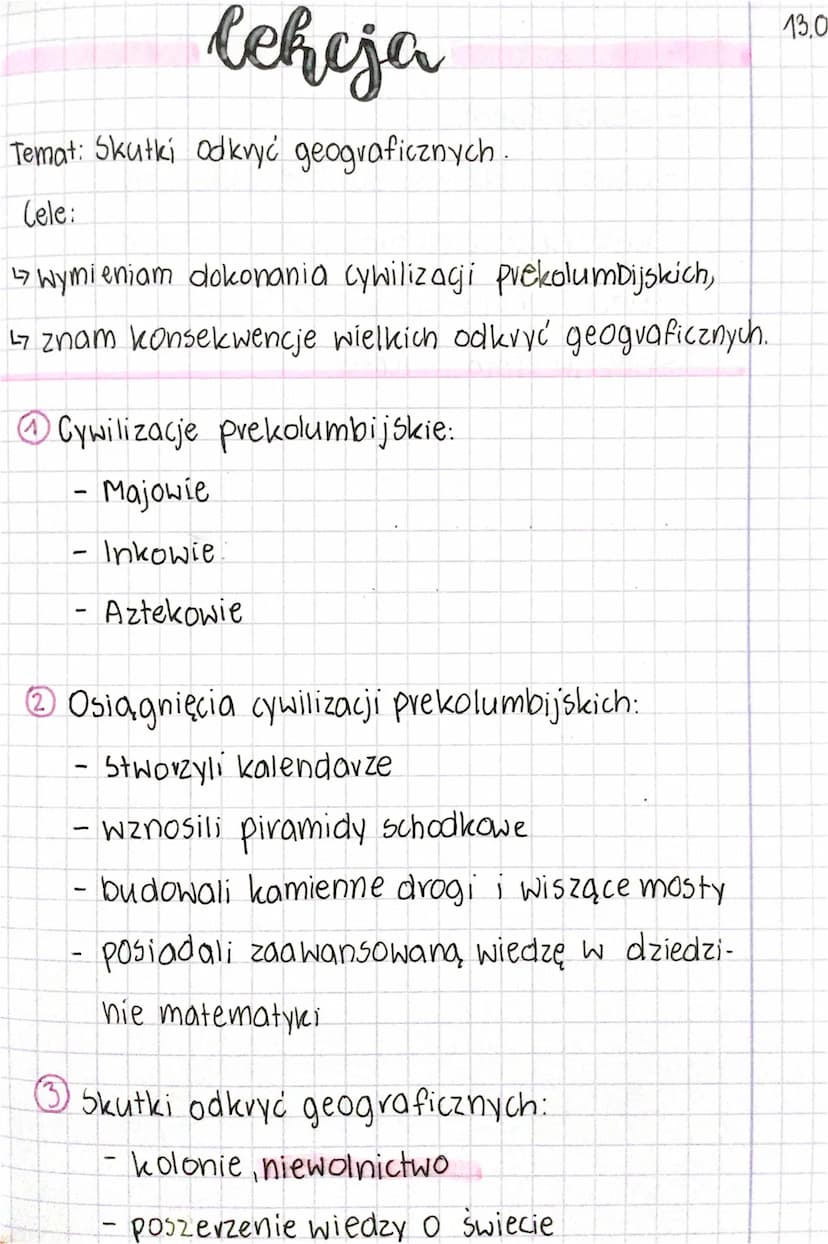 lekcja
13.0
Temat: Skutki odkryć geograficznych.
Cele:
↳ wymieniam dokonania cywilizacji prekolumbijskich,
↳ znam konsekwencje wielkich odkryć geograficznych.
① Cywilizacje prekolumbijskie:
- Majowie
- Inkowie
- Aztekowie
② Osiągnięcia cywilizacji prekolumbijskich:
- stworzyli kalendarze
- wznosili piramidy schodkowe
- budowali kamienne drogi i wiszące mosty
- posiadali zaawansowaną wiedzę w dziedzi-
nie matematyki
③ Skutki odkryć geograficznych:
- kolonie, niewolnictwo
- poszerzenie wiedzy o świecie